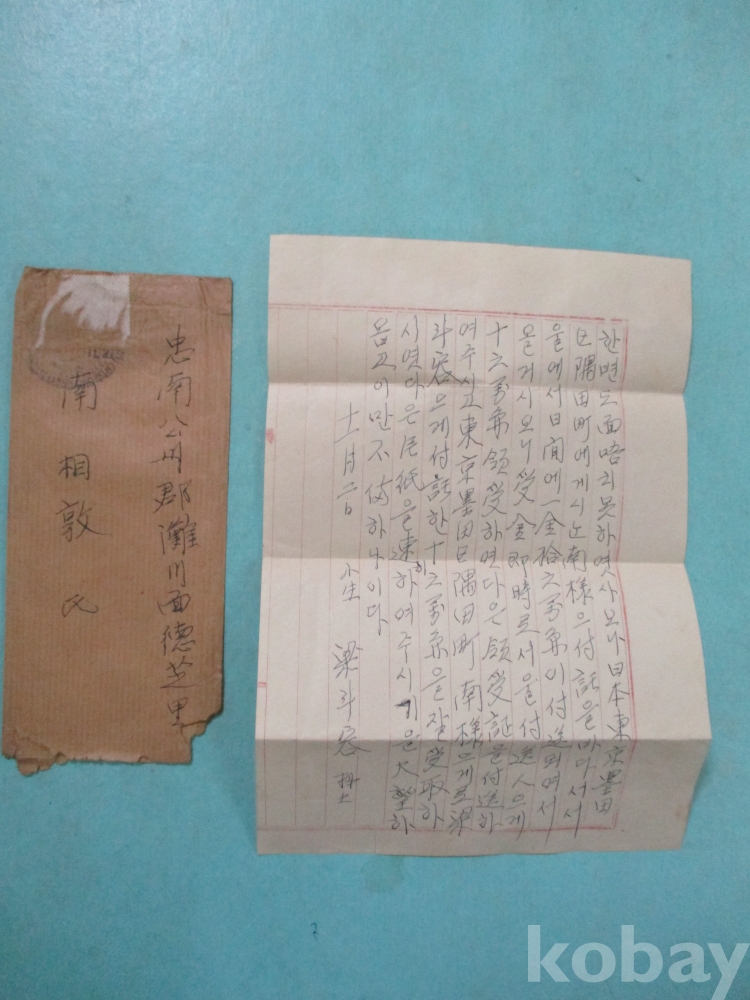 忠南公州郡灘川面德芝里
南相敦氏
한면도面晤치못하엿사오나日本東京墨田
区隅田町에게시는南様으付託을바다서서
울에서日間에一金拾六萬 이付送되여서
올거시오니受金即時로서울付送人으게
十六萬 領受하엿다은領受証을付送하
여주시고東京墨田区隅田町 南様으게로梁
斗容으게付託한十六萬 을잘受取하
시엿다은片紙을速히하여주시기을大望하
옵고이만不備하나이다
十一月
小生 梁斗容 拜上
kobay